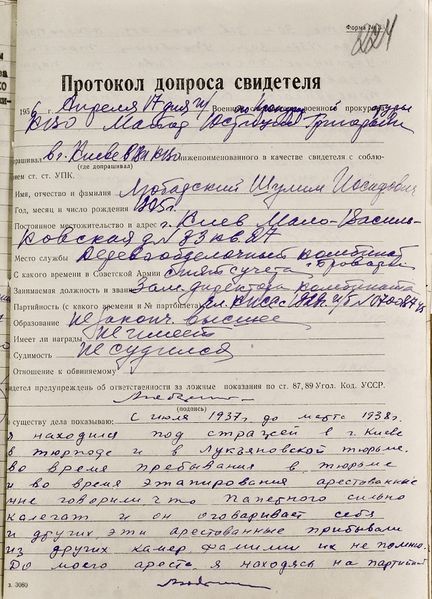 Форма №
224
Протокол допроса свидетеля
1956 г. Апреля 17 дня Военный прокурор военного прокуратуры
КВО Майор Юстиции Григорьевич
в г. Киеве В/П КВО нижепоименованного в качестве свидетеля с соблю-
(где допрашивал)
ем ст. ст. УПК.
Имя, отчество и фамилия Шулим Иосифович
Год, месяц и число рождения 1905 г.
Постоянное местожительство и адрес г. Киев Мало-Василь-
ковская д. № 33 кв. 27
Место службы Деревообделочный комбинат
С какого времени в Советской Армии снят с учета Бровары
Занимаемая должность и звание Зам. директора комбината
Партийность (с какого времени и № партбилета) чл. КПСС с 1929 г.
Образование незаконч. высшее
Имеет ли награды не имеет
Судимость не судился
Отношение к обвиняемому
идетел предупрежден об ответственности за ложные показания по ст. 87, 89 Угол. Код. УССР.
(подпись)
о существу дела показываю: С июля 1937 г. до марта 1938 г.
я находился под стражей в г. Киеве
в тюрподе и в Лукьяновской тюрьме.
во время пребывания в тюрьме
и во время этапирования арестованные
мне говорили, что Паперного сильно
калечат и он оговаривает себя
и других эти арестованные прибывали
из других камер, фамилии их не помню.
До моего ареста я находясь на партийной
з. 3060